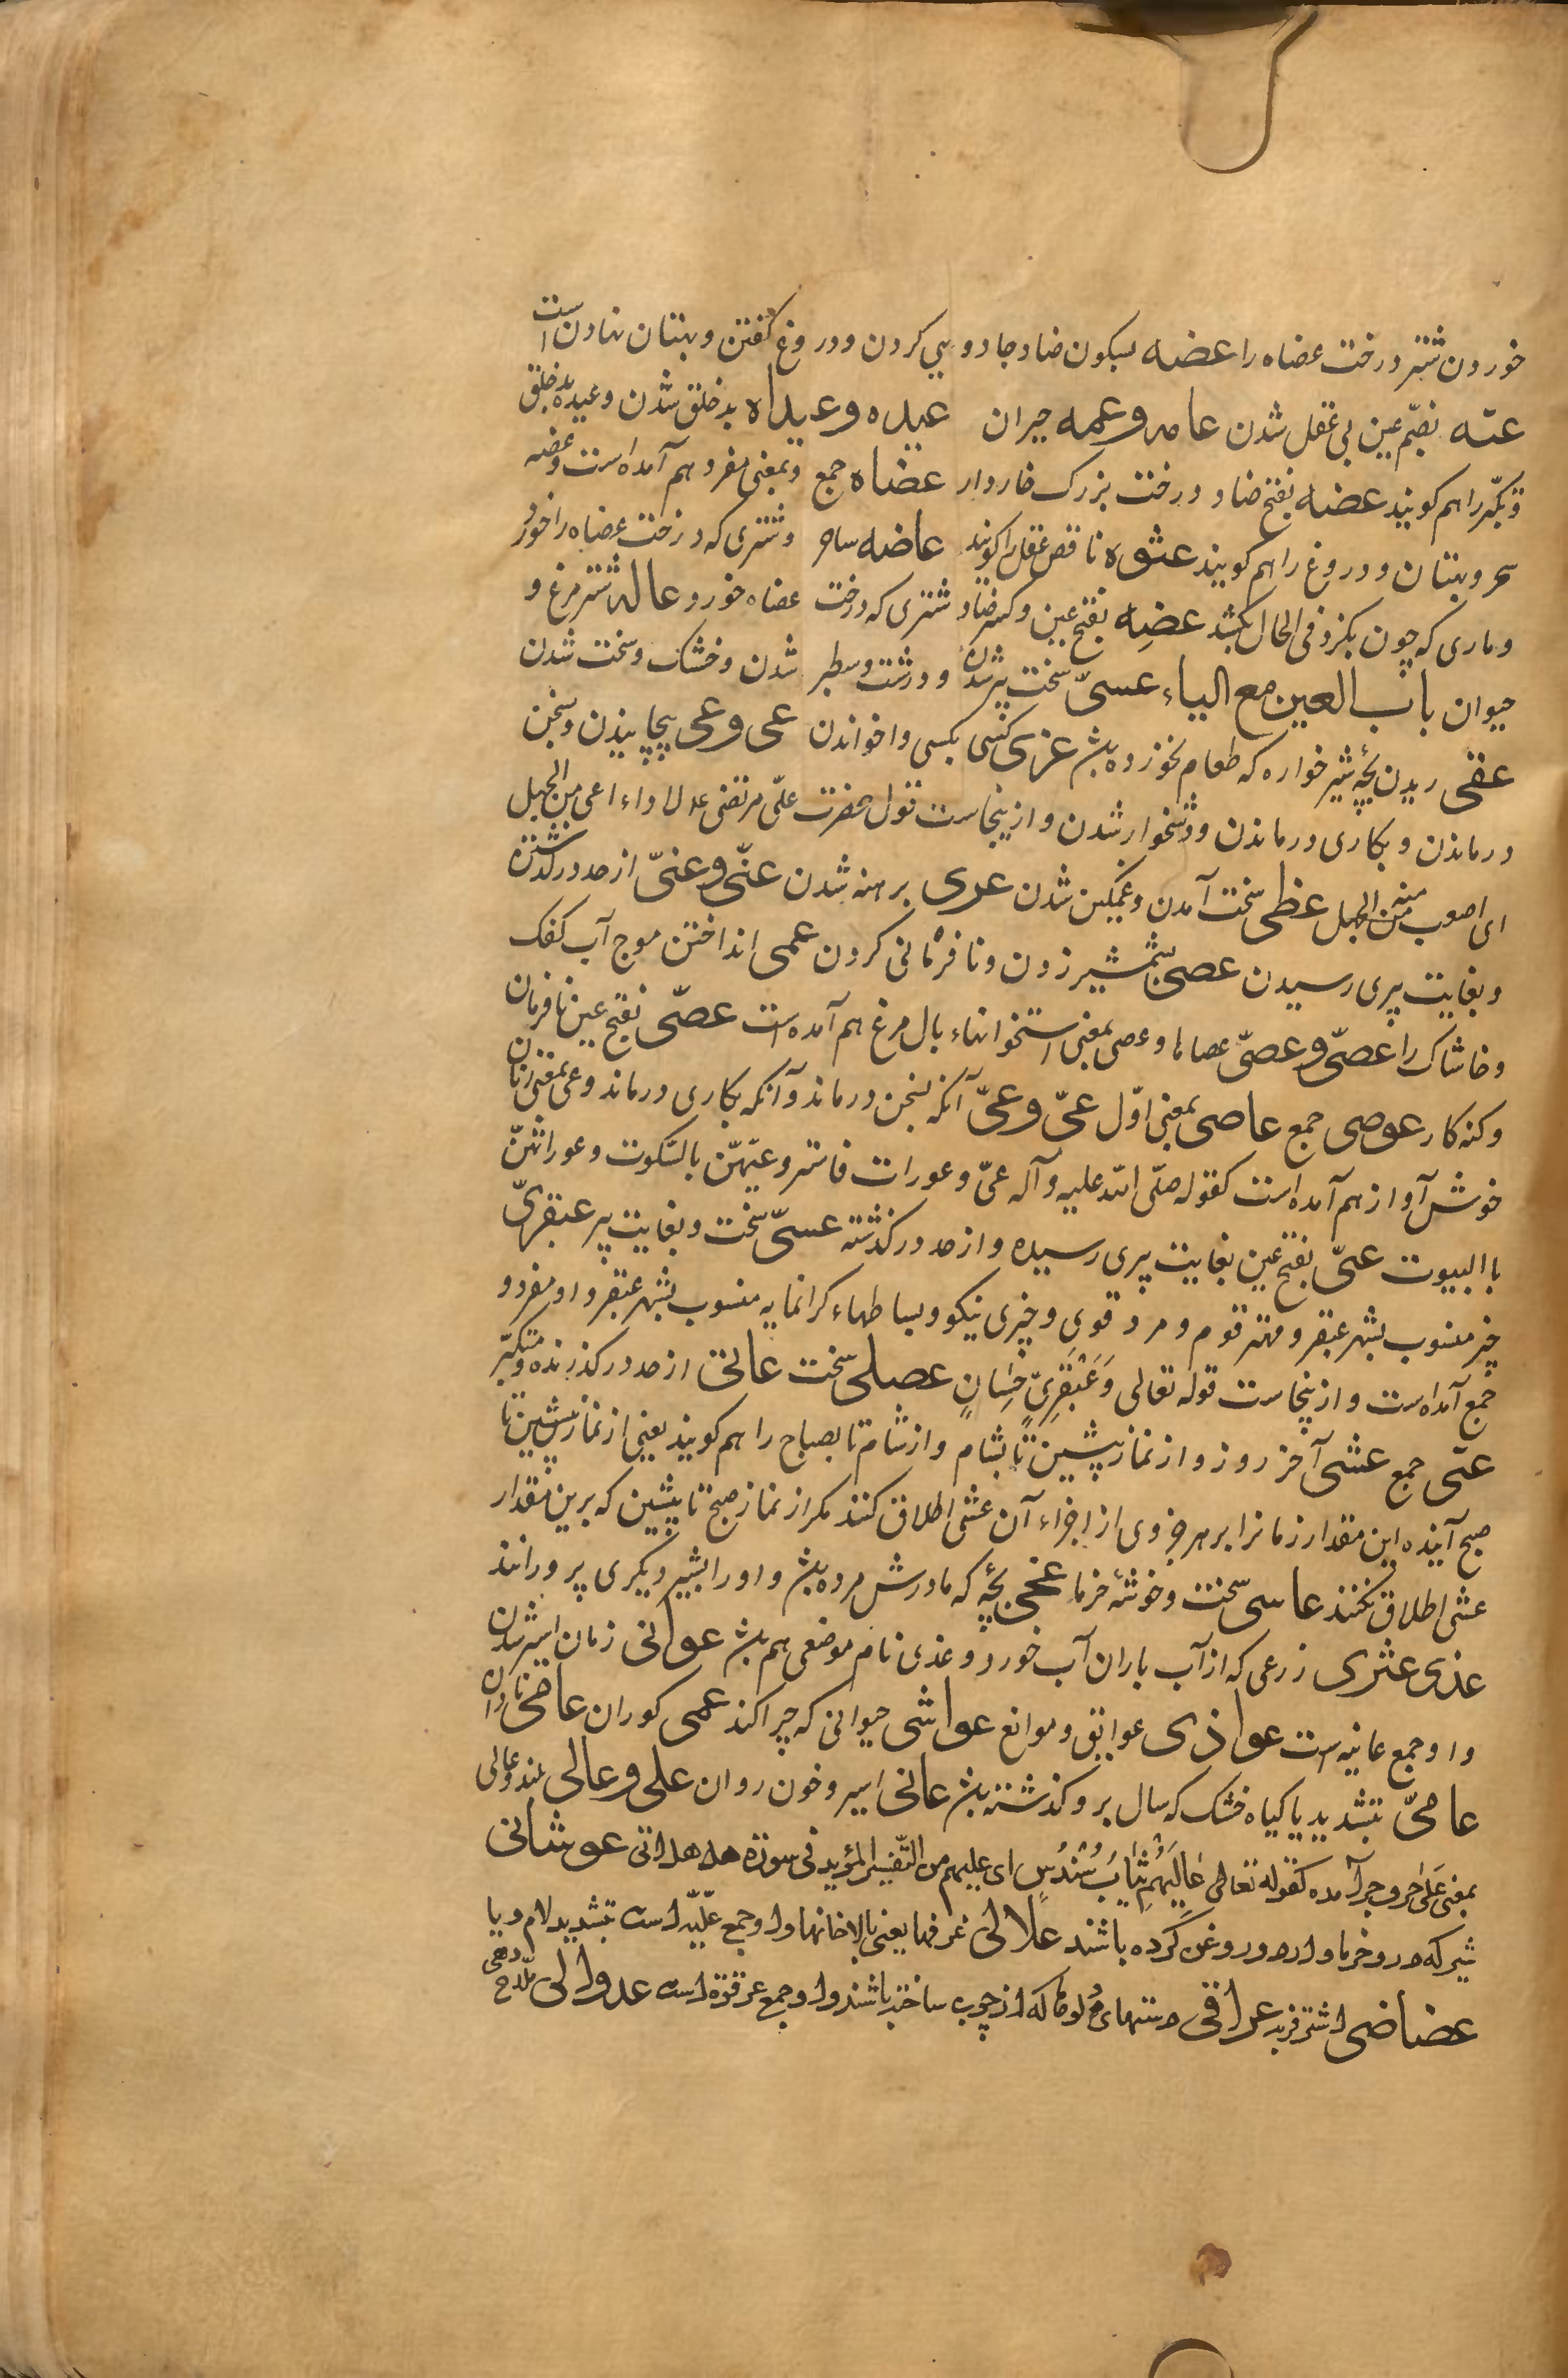 خوردن شتر درخت عضاه را عضه بسکون ضاد جادویی کردن و دروغ گفتن و بهتان نهادن است
عته بضم عین بی عقل شدن عامه و عمه حیران عیده و عیداه بدخلق شدن و عیده بدخلق
و تکبر را هم گویند عضه بفتح ضاد درخت بزرک خاردار عضاه جمع و بمعنی مفرد هم آمده است و عضه
سحر و بهتان و دروغ را هم گویند عثوه ناقص عقل را گویند عاضه ساحر و شتری که درخت عضاه را خورد
و ماری که چون بگزد فی الحال بکشد عضِه بفتح عین و کسر ضاد شتری که درخت عضاه خورد عاله شتر مرغ و
حیوان باب العین مع الیاء عسیّ سخت پیر شدن و درشت و سطبر شدن و خشک و سخت شدن
عقی ریدن بچهٔ شیرخواره که طعام نخورده باشد عزی کسی بکسی واخواندن عی و عی پیچانیدن و سخن
درماندن و بکاری درماندن و دشخوار شدن و ازینجاست قول حضرت علی مرتضی لا داء اعی من الجهل
ای اصعب منه من الجهل عظی سخت آمدن و غمگین شدن عری برهنه شدن عتّی و عتیّ از حد درگذشتن
و بغایت پیری رسیدن عصی بشمشیر زدن و نافرمانی کردن عمی انداختن موج آب کفک
و خاشاک را عصیّ و عصیّ عصاها و عصی بمعنی استخوانهاء بال مرغ هم آمده است عصیّ بفتح عین نافرمان
و کنه کار عوصی جمع عاصی بمعنی اول عیّ و عیّ آنکه بسخن درماند و آنکه بکاری درماند و عی بمعنی زنان
خوش آواز هم آمده است کقوله صلّی الله علیه و آله عیّ و عورات فاستروعیّهنّ بالسکوت و عوراتهنّ
باالبیوت عتیّ بفتح عین بغایت پیری رسیده و از حد درگذشته عسیّ سخت و بغایت پیر عبقریّ
چیز منسوب بشهر عبقر و مهتر قوم و مرد قوی و چیزی نیکو و بساطهاء کرانمایه منسوب بشهر عبقر و او مفرد و
جمع آمده است و ازینجاست قوله تعالی وَعَبْقَرِیٍّ حِسَانٍ عصلی سخت عاتی از حد درگذرنده و متکبّر
عتی جمع عشی آخر روز و از نماز پیشین تا بشام و از شام تا بصباح را هم گویند یعنی از نماز پیشین تا
صبح آینده این مقدار زمانرا بر هر جزوی از اجزاء آن عشی اطلاق کنند مکر از نماز صبح تا پیشین که برین مقدار
عشی اطلاق نکنند عاسی سخت و خوشهٔ خرما عجی بچهٔ که مادرش مرده باشد و او را بشیر دیگری پرورانند
عذی عثری زرعی که از آب باران آب خورد و عذی نام موضعی هم باشد عوانی زمان اسیر شدن
و او جمع عانیه است عواذی عوایق و موانع عواشی حیوانی که چرا کند عمی کوران عامی نادان
عامیّ بتشدید یا کیاه خشک که سال برو گذشته باشد عانی اسیر و خون روان علی و عالی بلند و عالی
بمعنی عَلی حروف جر آمده کقوله تعالی عَالِیَهُمْ ثِیَابُ سُنْدُسٍ ای علیهم من التفسیر المؤید فی سورة هل اتی عوشانی
شیر که درو خرما و ارد و روغن کرده باشند علالی غرفها یعنی بالاخانها و او جمع علّیّه است بتشدید لام و یا
عضاضی اشتر فربه عراقی دستهای دلو که از چوب ساخته باشند و او جمع عرقوة است عدوالی ملّاح